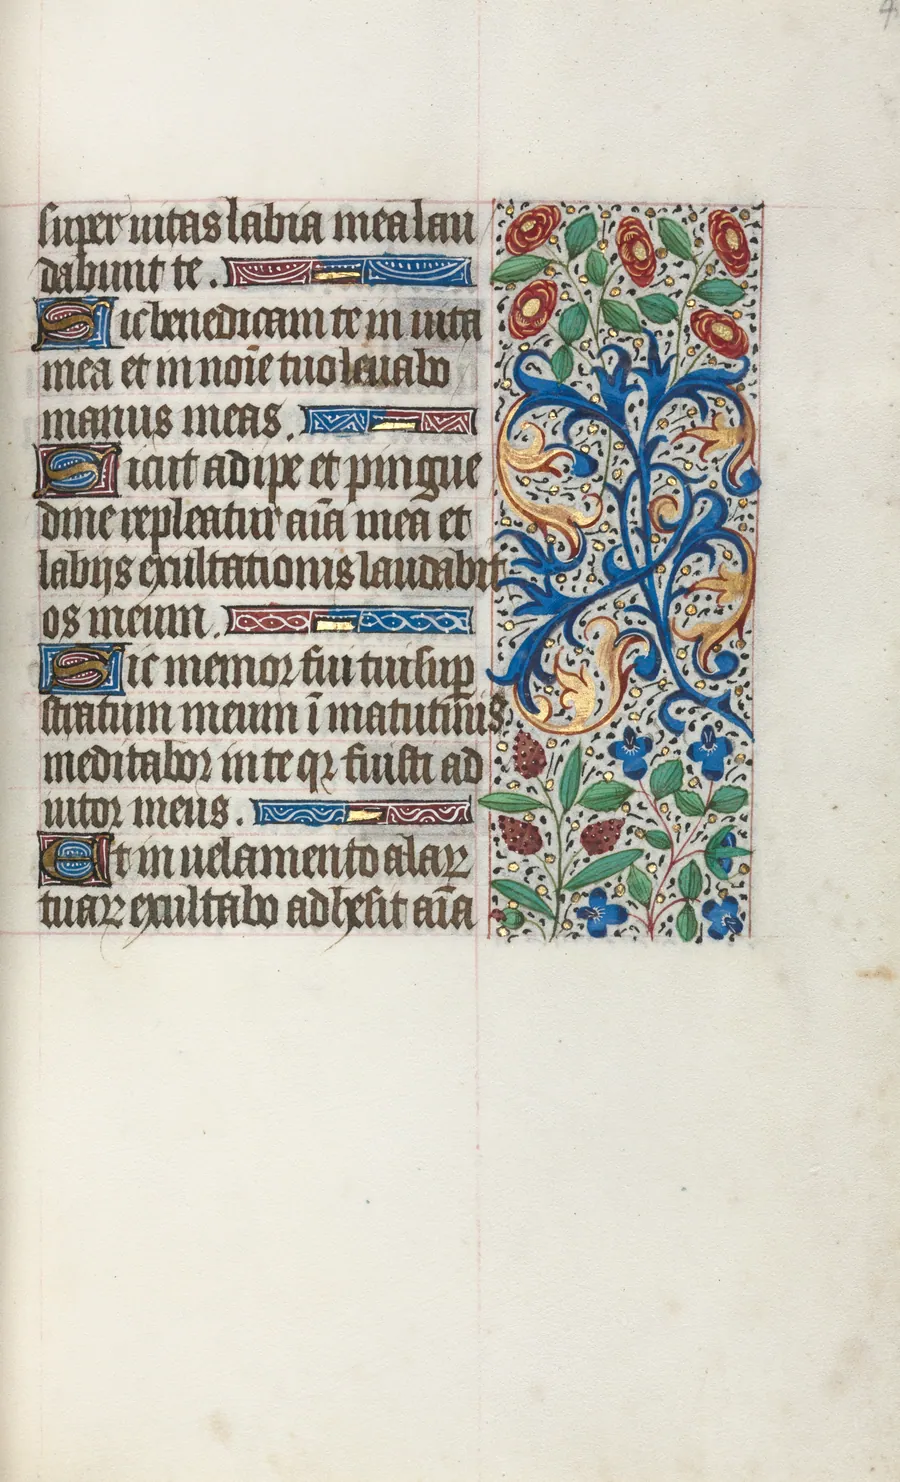 super uitas labia mea lau
dabunt te.
Sic benedicam te in uita
mea et in noīe tuo leuabo
manus meas.
Sicut adipe et pingue
dine repleatur aīa mea et
labijs exultationis laudabit
os meum.
Sic memor fui tui sup̄
stratum meum ī matutinis
meditabor in te qꝛ fuisti ad
iutor meus.
Et in uelamento alaꝝ
tuaꝝ exultabo adhesit aīa
4